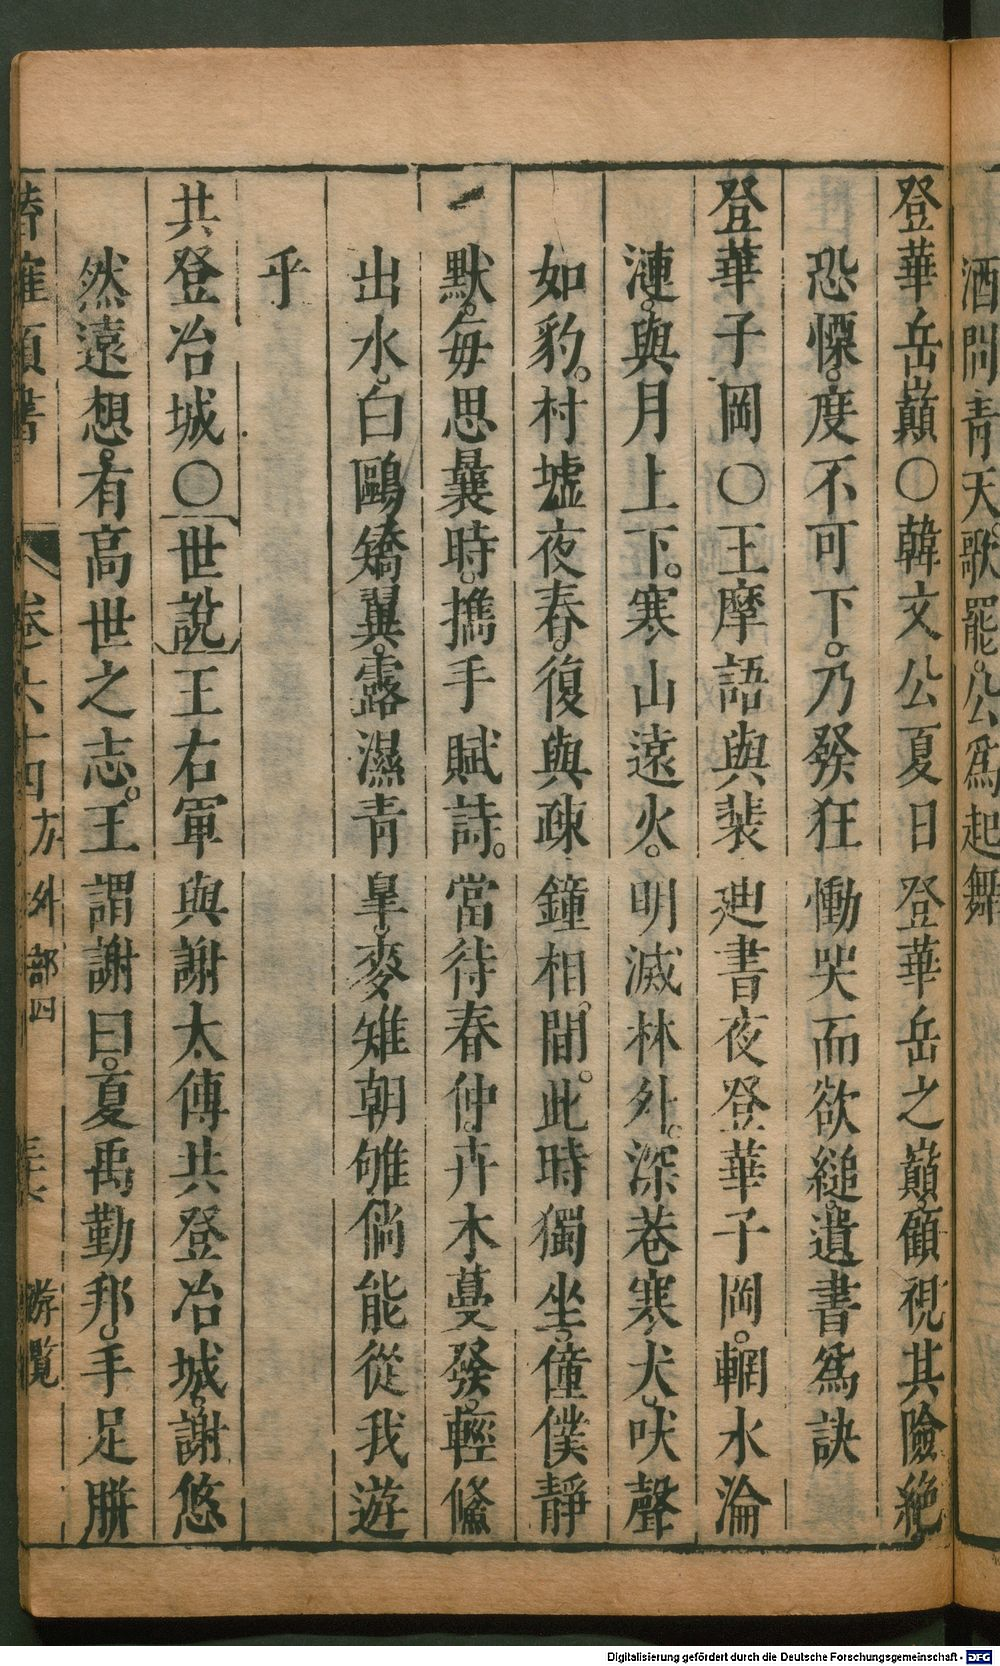 酒問青天歌罷。公爲起舞
登華岳巔〇韓文公夏日登華岳之巔。顧視其險絕
恐慄。度不可下。乃發狂慟哭而欲縋。遺書爲訣
登華子岡〇王摩詰與裴迪書夜登華子岡。輞水淪
漣。與月上下。寒山遠火。明滅林外。深巷寒犬。吠聲
如豹。村墟夜舂。復與疎鐘相間。此時獨坐。僮僕靜
默。每思曩時。携手賦詩。當待春仲。卉木蔓發。輕鯈
出水。白鷗矯翼。露濕青皐。麥雉朝雊倘能從我遊
乎
共登冶城〇世說王右軍與謝太傅共登冶城。謝悠
然遠想。有高世之志。王謂謝曰。夏禹勤邦。手足胼
卷六十四方外部四 遊覽
Digitalisierung gefördert durch die Deutsche Forschungsgemeinschaft - DFG